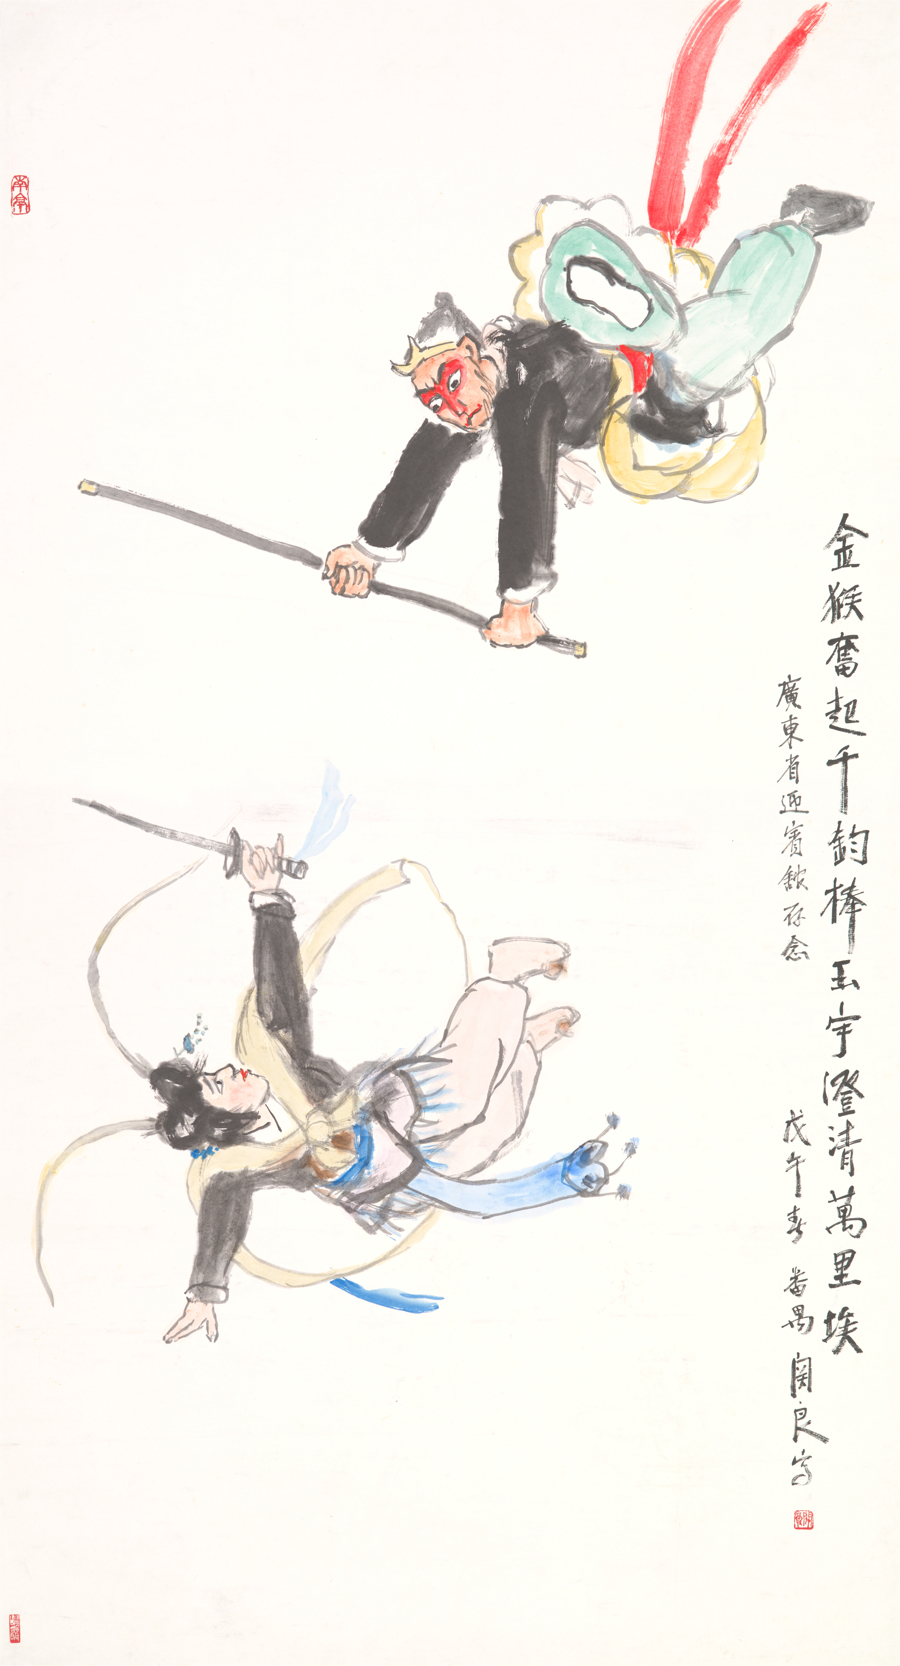 金猴奮起千鈞棒玉宇澄清萬里埃
廣東省迎賓館存念
戊午春 番禺 関良寫